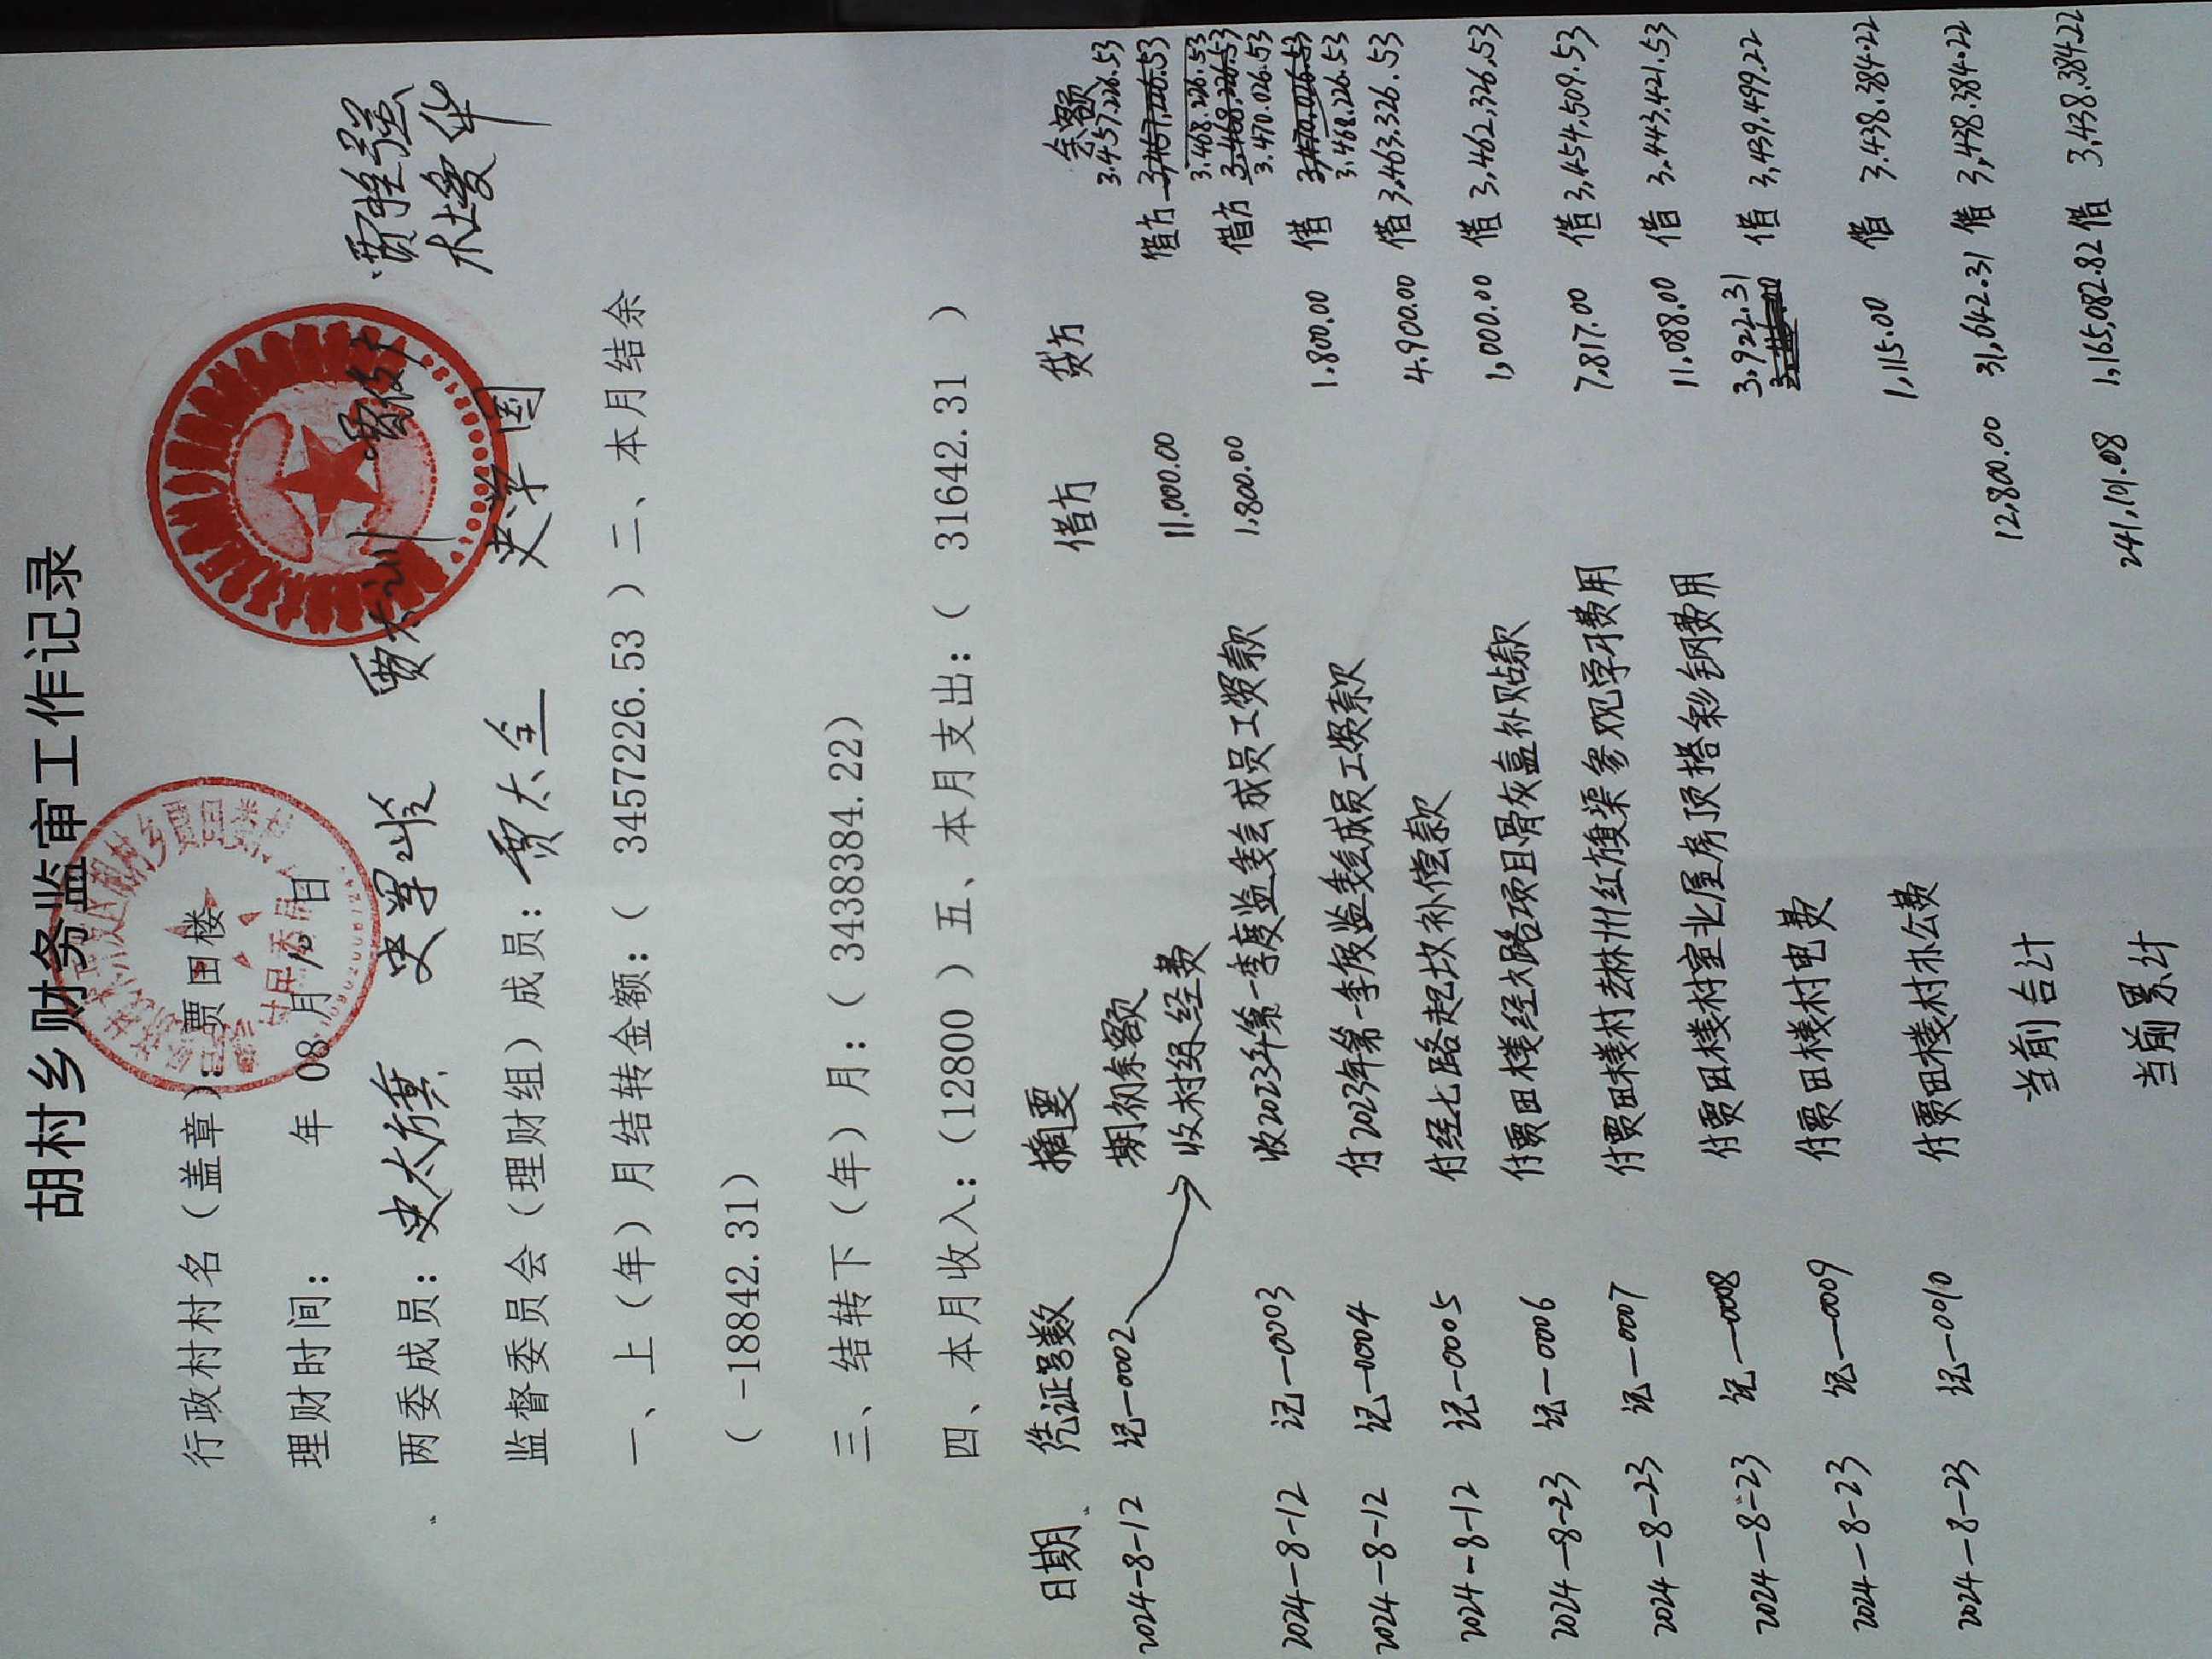 胡村乡财务监审工作记录
行政村村名（盖章）：贾田楼
理财时间： 年 08 月 10 日
两委成员：史太旗 史军岭 贾太训
监督委员会（理财组）成员：贾太全 史学国
一、上（年）月结转金额：（ 3457226.53 ）二、本月结余
（ -18842.31）
三、结转下（年）月：（ 3438384.22）
四、本月收入：（12800 ）五、本月支出：（ 31642.31 ）
日期 凭证号数 摘要 借方 贷方 余额
期初余额 3.457.226.53
2024-8-12 记-0002 收村级经费 11.000.00 借方 3.468.226.53
2024-8-12 记-0003 收2023年第一季度监委会成员工资款 1.800.00 借方 3.470.026.53
2024-8-12 记-0004 付2023年第一季度监委会成员工资款 1.800.00 借 3.468.226.53
2024-8-12 记-0005 付经七路起坟补偿款 4.900.00 借 3.463.326.53
2024-8-23 记-0006 付贾田楼经六路项目骨灰盒补贴款 1,000.00 借 3,462,326.53
2024-8-23 记-0007 付贾田楼村去林州红旗渠参观学习费用 7,817.00 借 3,454,509.53
2024-8-23 记-0008 付贾田楼村室北屋房顶搭彩钢费用 11,088.00 借 3,443,421.53
2024-8-23 记-0009 付贾田楼村电费 3,922.31 借 3,439,499.22
2024-8-23 记-0010 付贾田楼村办公费 1,115.00 借 3.438.384.22
当前合计 12,800.00 31,642.31 借 3,438.384.22
当前累计 241,191.08 1,165,082.82 借 3,438.384.22